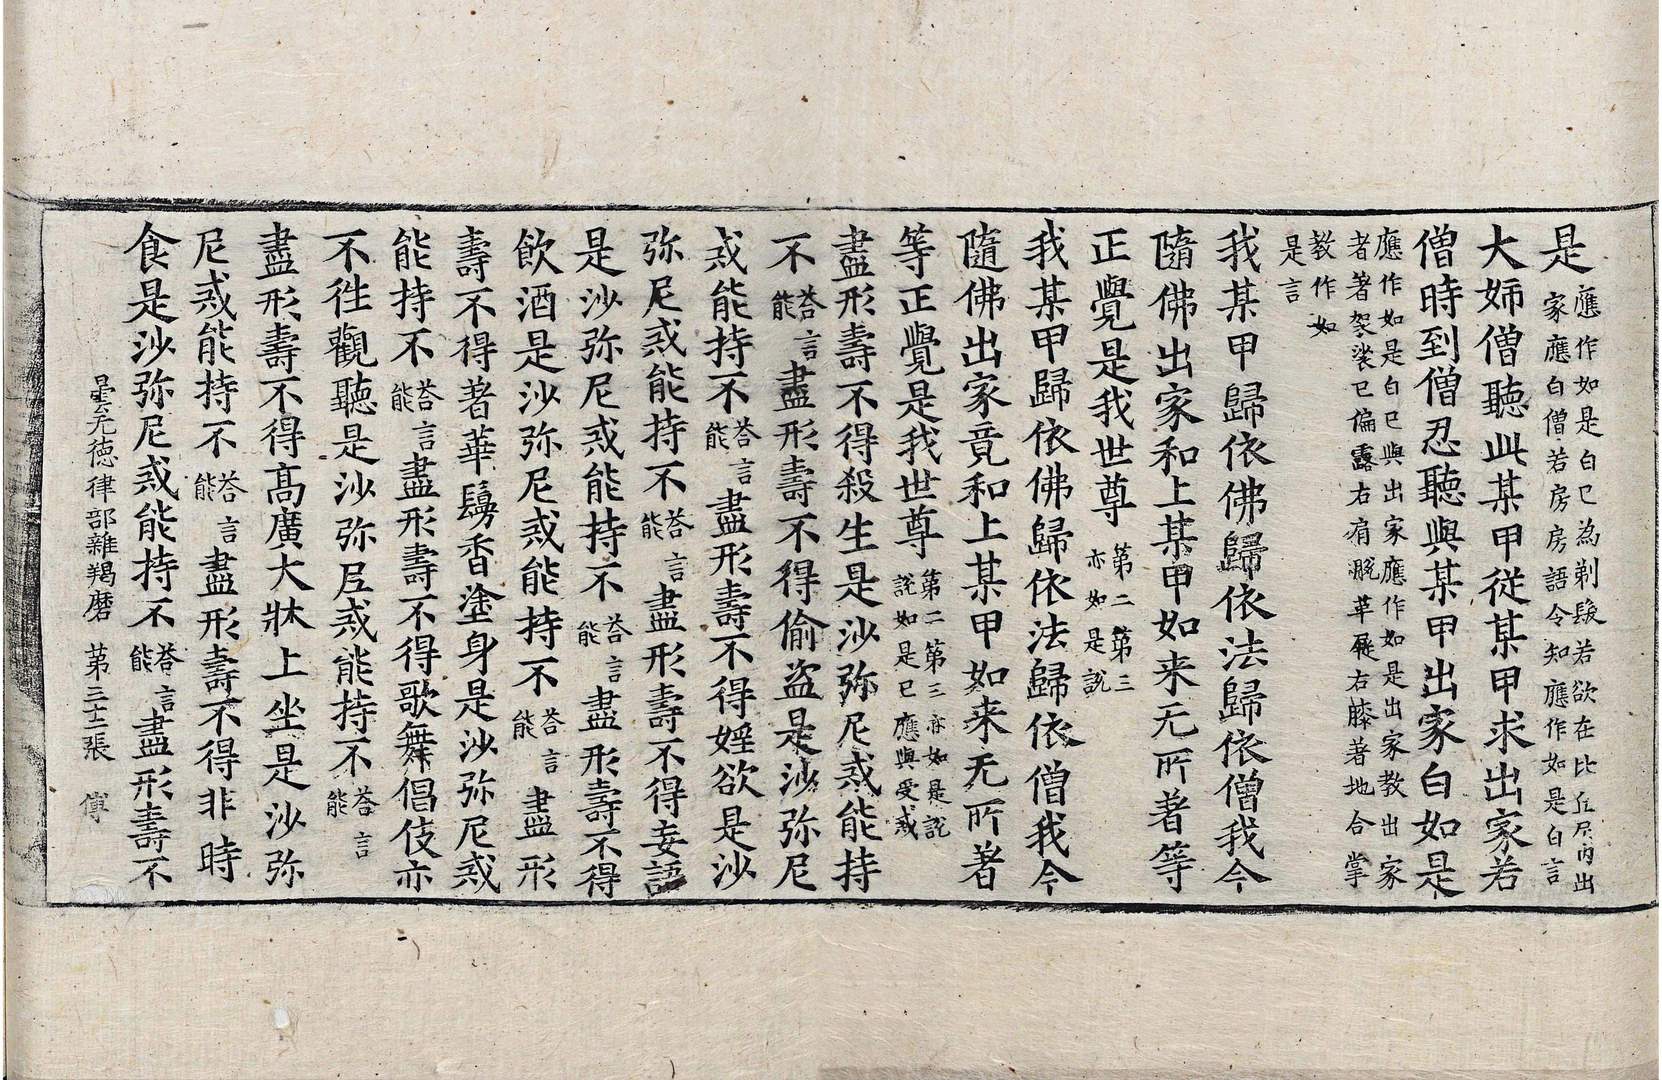 是應作如是白已為剃髮若欲在比丘尼內出家應白僧若房房語令知應作如是白言
大姉僧聽此某甲從某甲求出家若
僧時到僧忍聽與某甲出家白如是
應作如是白已與出家應作如是出家教出家者著袈裟已偏露右肩脫革屣右膝著地合掌
教作如是言
我某甲歸依佛歸依法歸依僧我今
隨佛出家和上某甲如来无所著等
正覺是我世尊第二第三亦如是說
我某甲歸依佛歸依法歸依僧我今
隨佛出家竟和上某甲如来无所著
等正覺是我世尊第二第三亦如是說說如是已應與受戒
盡形壽不得殺生是沙弥尼戒能持
不荅言能盡形壽不得偷盗是沙弥尼
戒能持不荅言能盡形壽不得婬欲是沙
弥尼戒能持不荅言能盡形壽不得妄語
是沙弥尼戒能持不荅言能盡形壽不得
飲酒是沙弥尼戒能持不荅言能盡形
壽不得著華鬘香塗身是沙弥尼戒
能持不荅言能盡形壽不得歌舞倡伎亦
不徃觀聽是沙弥尼戒能持不荅言能
盡形壽不得高廣大牀上坐是沙弥
尼戒能持不荅言能盡形壽不得非時
食是沙弥尼戒能持不荅言能盡形壽不
曇无德律部雜羯磨 第三十二張 傅